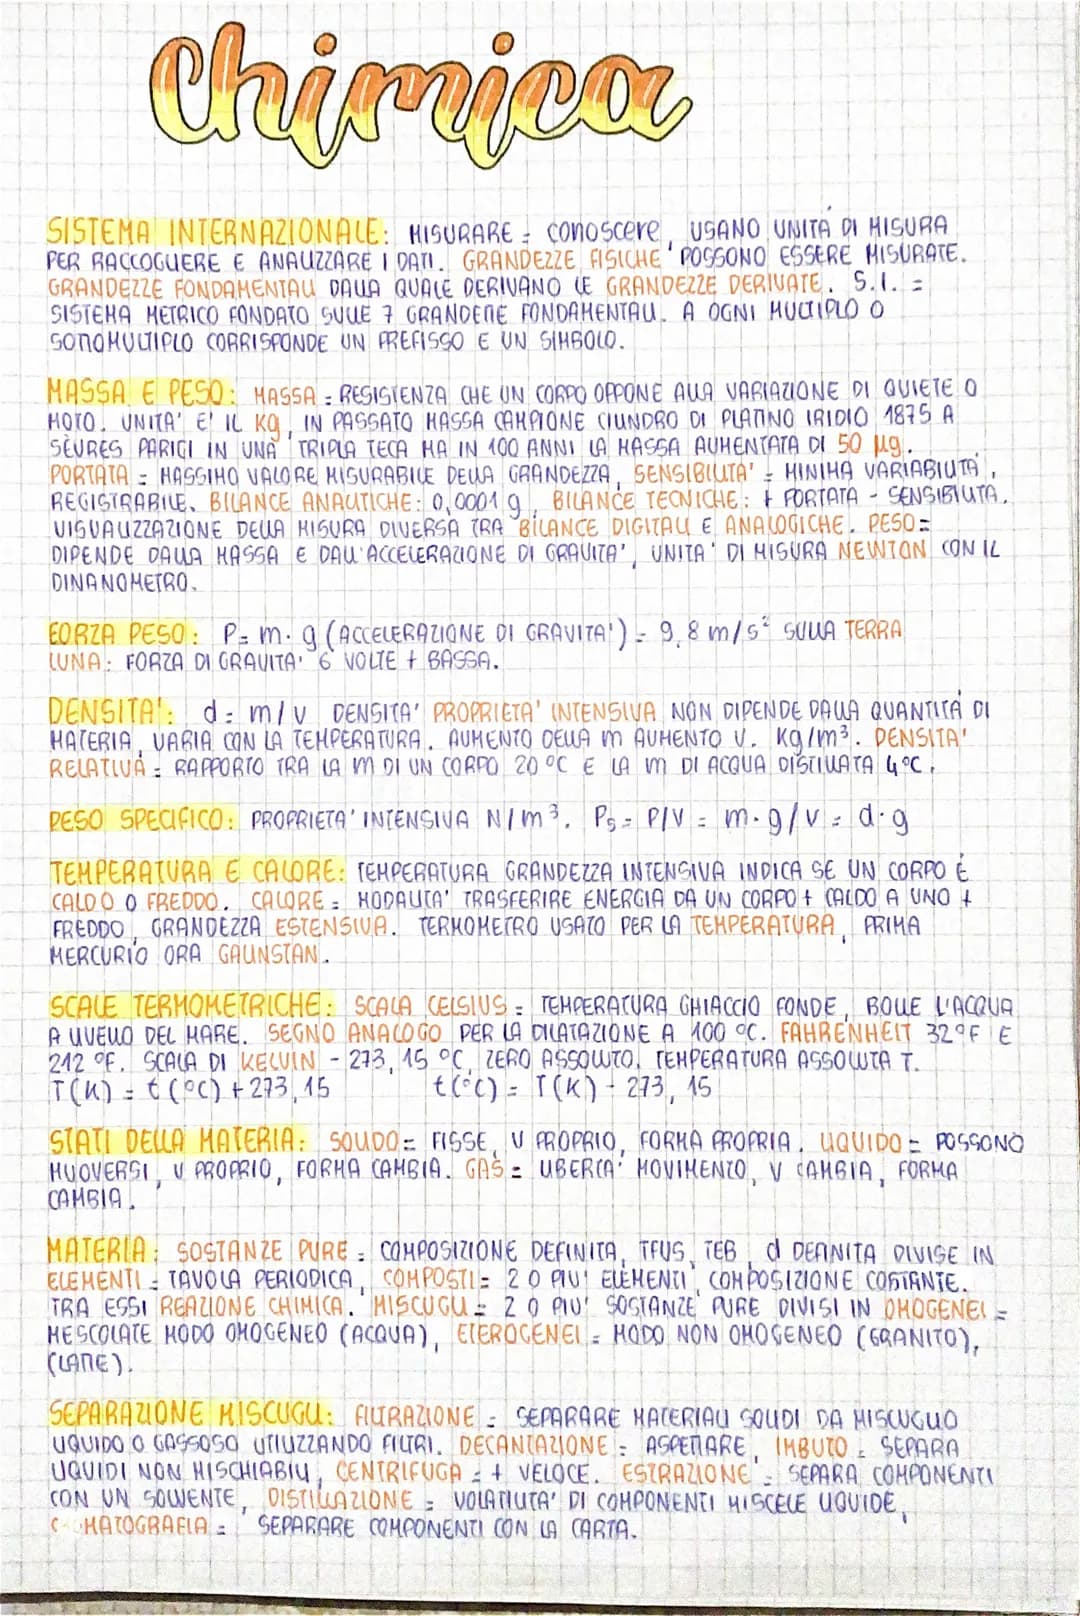 Chimica
SISTEMA INTERNAZIONALE: MISURARE = CONOSCERE, USANO UNITÀ DI MISURA
PER RACCOGLIERE E ANALIZZARE I DATI. GRANDEZZE FISICHE POSSONO ESSERE MISURATE.
GRANDEZZE FONDAMENTALI DALLA QUALE DERIVANO LE GRANDEZZE DERIVATE. S.I. =
SISTEMA METRICO FONDATO SULLE 7 GRANDEZZE FONDAMENTALI. A OGNI MULTIPLO O
SOTTOMULTIPLO CORRISPONDE UN PREFISSO E UN SIMBOLO.
MASSA E PESO: MASSA = RESISTENZA CHE UN CORPO OPPONE ALLA VARIAZIONE DI QUIETE O
MOTO. UNITA' E' IL Kg, IN PASSATO MASSA CAMPIONE CILINDRO DI PLATINO IRIDIO 1875 A
SÈVRES PARIGI IN UNA TRIPLA TECA MA IN 100 ANNI LA MASSA AUMENTATA DI 50 µg.
PORTATA = MASSIMO VALORE MISURABILE DELLA GRANDEZZA, SENSIBILITA' = MINIMA VARIABILITÀ,
REGISTRABILE. BILANCE ANALITICHE: 0,0001 g, BILANCE TECNICHE: + PORTATA - SENSIBILITA.
VISUALIZZAZIONE DELLA MISURA DIVERSA TRA BILANCE DIGITALI E ANALOGICHE. PESO=
DIPENDE DALLA MASSA E DALL'ACCELERAZIONE DI GRAVITA', UNITA' DI MISURA NEWTON CON IL
DINANOMETRO.
FORZA PESO: P= m·g (ACCELERAZIONE DI GRAVITA') = 9,8 m/s² SULLA TERRA
LUNA: FORZA DI GRAVITA' 6 VOLTE + BASSA.
DENSITA': d = m/V DENSITA' PROPRIETA' INTENSIVA NON DIPENDE DALLA QUANTITÀ DI
MATERIA, VARIA CON LA TEMPERATURA. AUMENTO DELLA m AUMENTO V. Kg/m³. DENSITA'
RELATIVA = RAPPORTO TRA LA m DI UN CORPO 20 °C E LA m DI ACQUA DISTILLATA 4°C.
PESO SPECIFICO: PROPRIETA' INTENSIVA N/m³. Ps = P/V = m·g/V = d·g
TEMPERATURA E CALORE: TEMPERATURA GRANDEZZA INTENSIVA INDICA SE UN CORPO È
CALDO O FREDDO. CALORE = MODALITA' TRASFERIRE ENERGIA DA UN CORPO + CALDO A UNO +
FREDDO, GRANDEZZA ESTENSIVA. TERMOMETRO USATO PER LA TEMPERATURA, PRIMA
MERCURIO ORA GALINSTAN.
SCALE TERMOMETRICHE: SCALA CELSIUS = TEMPERATURA GHIACCIO FONDE, BOLLE L'ACQUA
A LIVELLO DEL MARE. SEGNO ANALOGO PER LA DILATAZIONE A 100 °C. FAHRENHEIT 32°F E
212 °F. SCALA DI KELVIN - 273,15 °C, ZERO ASSOLUTO. TEMPERATURA ASSOLUTA T.
T(K) = t(°C) + 273,15 t(°C) = T(K) - 273,15
STATI DELLA MATERIA: SOLIDO= FISSE, V PROPRIO, FORMA PROPRIA. LIQUIDO = POSSONO
MUOVERSI, V PROPRIO, FORMA CAMBIA. GAS = LIBERTA' MOVIMENTO, V CAMBIA, FORMA
CAMBIA.
MATERIA: SOSTANZE PURE = COMPOSIZIONE DEFINITA, TFUS, TEB, d DEFINITA DIVISE IN
ELEMENTI = TAVOLA PERIODICA, COMPOSTI = 2 O PIU' ELEMENTI, COMPOSIZIONE COSTANTE.
TRA ESSI REAZIONE CHIMICA. MISCUGLI = 2 O PIU' SOSTANZE PURE DIVISI IN OMOGENEI =
MESCOLATE MODO OMOGENEO (ACQUA), ETEROGENEI = MODO NON OMOGENEO (GRANITO),
(LATTE).
SEPARAZIONE MISCUGLI: FILTRAZIONE = SEPARARE MATERIALI SOLIDI DA MISCUGLIO
LIQUIDO O GASSOSO UTILIZZANDO FILTRI. DECANTAZIONE = ASPETTARE, IMBUTO = SEPARA
LIQUIDI NON MISCHIABILI, CENTRIFUGA = + VELOCE. ESTRAZIONE = SEPARA COMPONENTI
CON UN SOLVENTE, DISTILLAZIONE = VOLATILITA' DI COMPONENTI MISCELE LIQUIDE,
CROMATOGRAFIA = SEPARARE COMPONENTI CON LA CARTA.